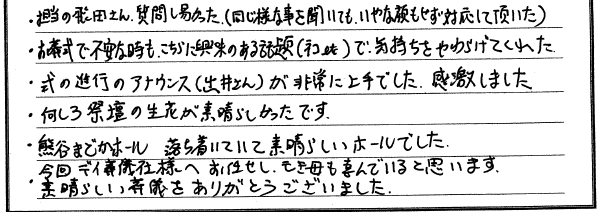 ・担当の飛田さん、質問し易かった。(同じ様な事を聞いても、いやな顔もせず対応して頂いた)
・お葬式で不安な時も、こちらに興味のある話題(ネコetc)で、気持ちをやわらげてくれた。
・式の進行のアナウンス(出井さん)が非常に上手でした。感激しました
・何しろ祭壇の生花が素晴らしかったです。
・熊谷まどかホール 落ち着いていて素晴らしいホールでした。
今回 儀社様へお任せし、亡き母も喜んでいると思います。
・素晴らしい葬儀をありがとうございました。